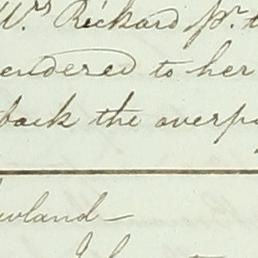 Wm Rickard pr. t
endered to her
back the overpa
wland—